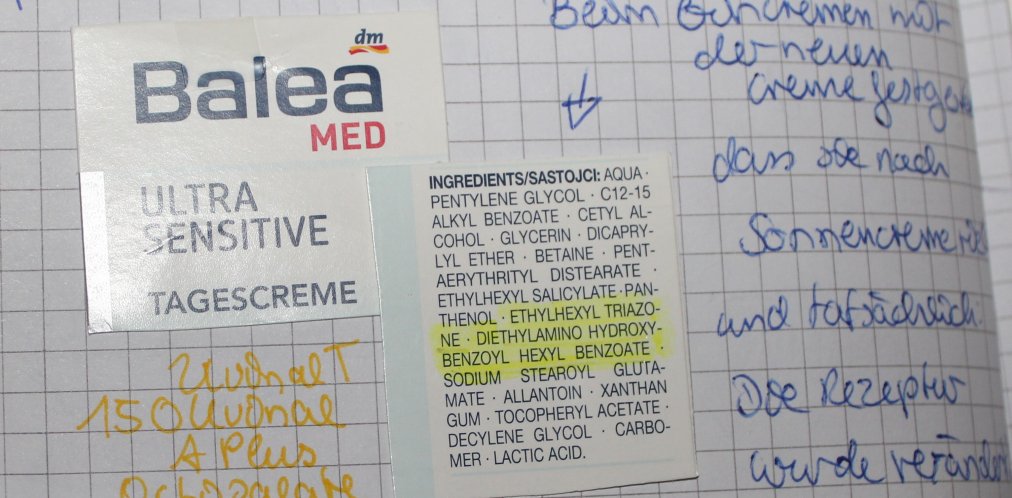 dm
Balea
MED
ULTRA
SENSITIVE
TAGESCREME
INGREDIENTS/SASTOJCI: AQUA ·
PENTYLENE GLYCOL · C12-15
ALKYL BENZOATE · CETYL AL-
COHOL · GLYCERIN · DICAPRY-
LYL ETHER · BETAINE · PENT-
AERYTHRITYL DISTEARATE ·
ETHYLHEXYL SALICYLATE · PAN-
THENOL · ETHYLHEXYL TRIAZO-
NE · DIETHYLAMINO HYDROXY-
BENZOYL HEXYL BENZOATE ·
SODIUM STEAROYL GLUTA-
MATE · ALLANTOIN · XANTHAN
GUM · TOCOPHERYL ACETATE ·
DECYLENE GLYCOL · CARBO-
MER · LACTIC ACID.
Uvinal T
150 Uvinal
A Plus
Beim Eincremen mit
der neuen
creme
dass sie nach
Sonnencreme
und tatsächlich
Die Rezeptur
wurde